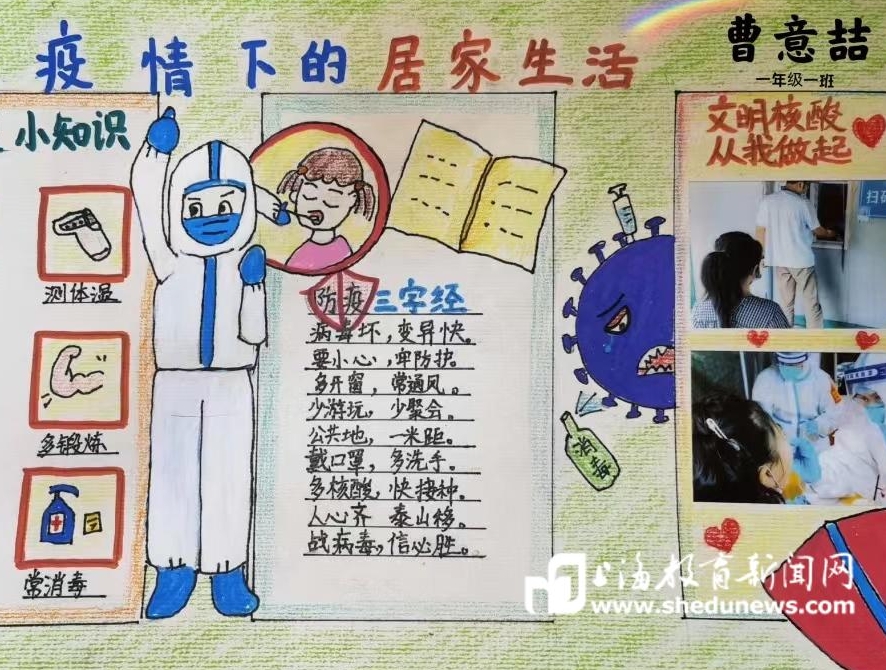 疫情下的居家生活
曹意喆
一年级一班
小知识
测体温
多锻炼
常消毒
防疫三字经
病毒坏,变异快。
要小心,牢防护。
多开窗,常通风。
少游玩,少聚会。
公共地,一米距。
戴口罩,多洗手。
多核酸,快接种。
人心齐 泰山移。
战病毒,信必胜。
消毒
文明核酸
从我做起
扫码
上海教育新闻网
www.shedunews.com